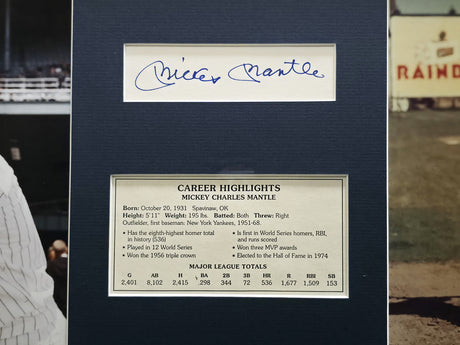 Mickey Mantle
RAIND
CAREER HIGHLIGHTS
MICKEY CHARLES MANTLE
Born: October 20, 1931 Spavinaw, OK
Height: 5'11" Weight: 195 lbs. Batted: Both Threw: Right
Outfielder, first baseman: New York Yankees, 1951-68.
• Has the eighth-highest homer total
in history (536)
• Played in 12 World Series
• Won the 1956 triple crown
• Is first in World Series homers, RBI,
and runs scored
• Won three MVP awards
• Elected to the Hall of Fame in 1974
MAJOR LEAGUE TOTALS
G AB H BA 2B 3B HR R RBI SB
2,401 8,102 2,415 .298 344 72 536 1,677 1,509 153